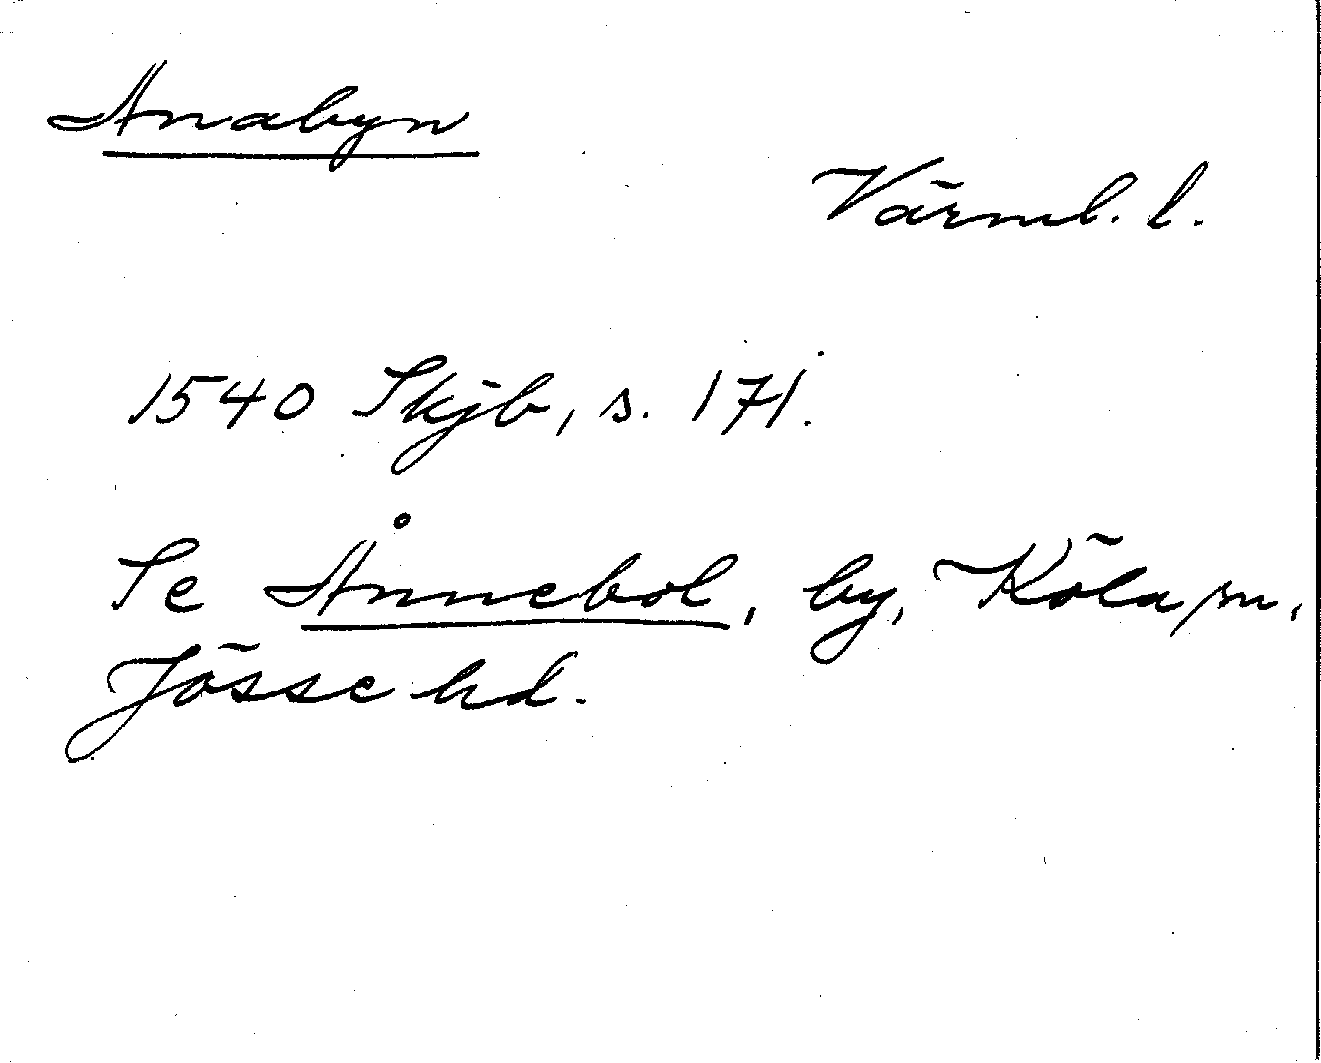 Anabyn
Värml. l.
1540 Skjb, s. 171.
Se Ånnebol, by, Köla sn,
Jösse hd.